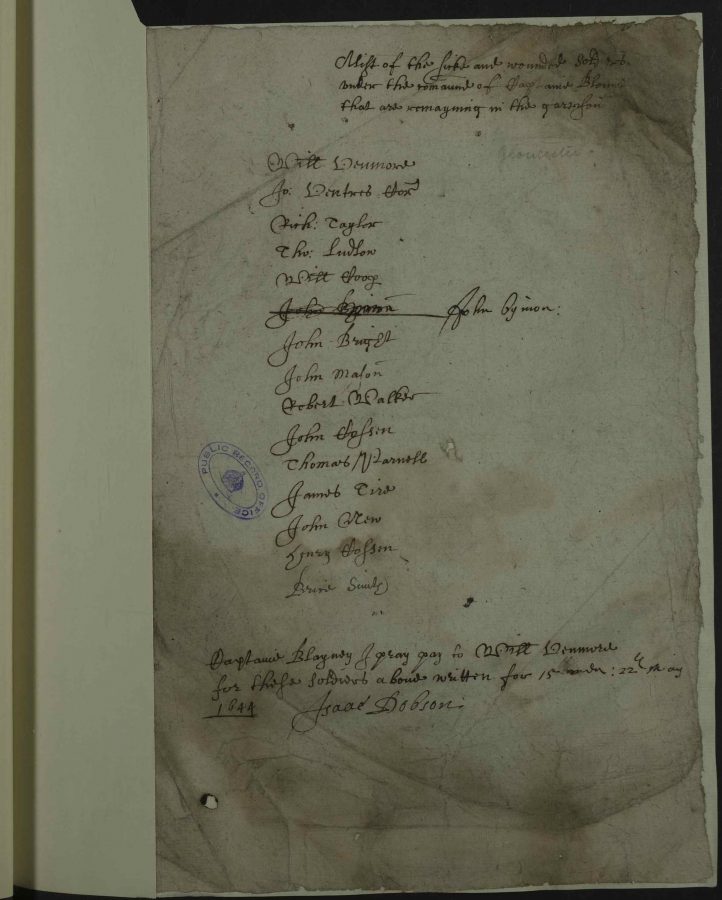 A list of the sicke and wounded
under the comaund of Captaine
that are remayning in the garrison
Gloucester
Will Venmore
Jo: Ventres Cor
Rich: Taylor
Tho: Ludlow
Will
John Symon:
John Bright
John Mason
Robert Walker
John
Thomas Parnell
James Tire
John New
Henry
Brice Smith
PUBLIC RECORD OFFICE
Captaine Blayney I pray pay to Will Venmore
for these soldiers above written for 15 men: 22 May
1644 Isaac Dobson: